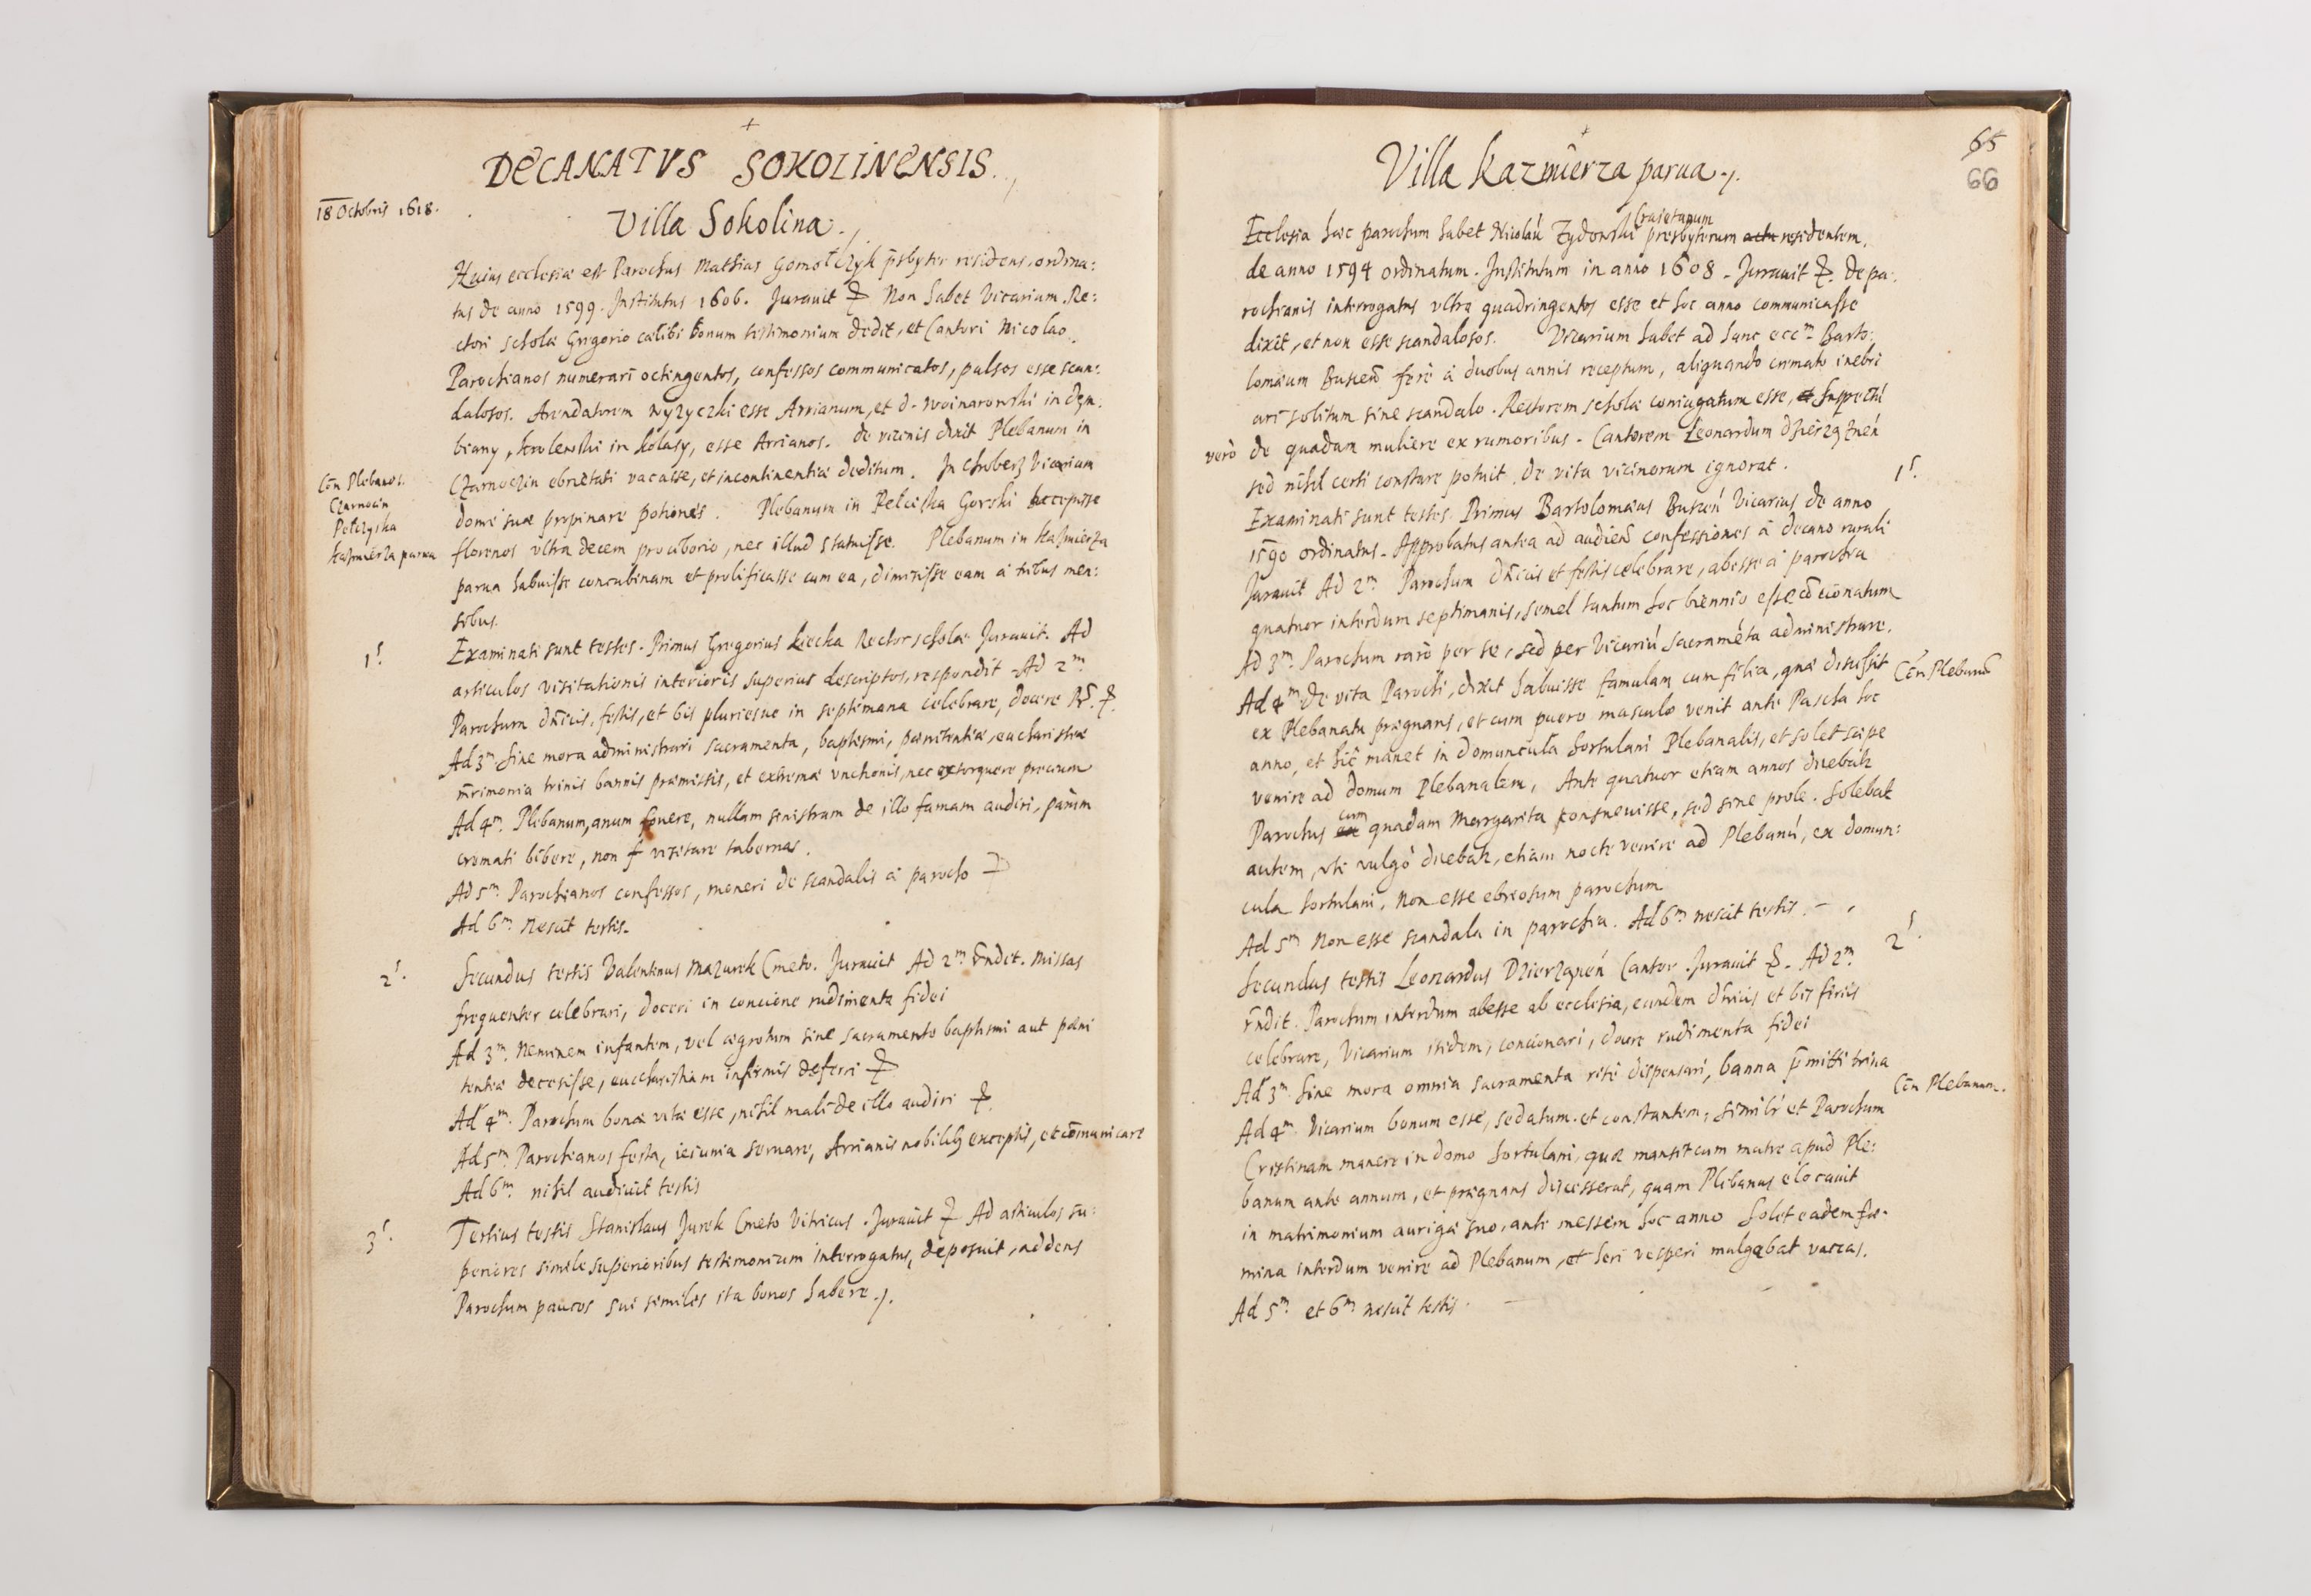 DECANATVS SOKOLINENSIS.
18 Octobris 1618.
Villa Sokolina.
Huius ecclesiæ est Parochus Mathias Gomołczyk p̄sbyter residens, ordina:
tus de anno 1599. Institutus 1606. Jurauit Non habet Vicarium. Re:
ctori scholæ Grigorio cælibi bonum testimonium dedit, et Cantori Nicolao.
Parochianos numerari octingentos, confessos communicatos, pulsos esse scan:
dalosos. Arendatorem Wyzyczki esse Arrianum, et d. Woinarowski in Dęm:
biany, Krolewski in Kolasy, esse Arrianos. De vicinis dixit Plebanum in
Czarnoczin ebrietati vacasse, et incontinentiæ deditum. In Chroberz Vicarium
domi suæ propinare potiones. Plebanum in Pelciska Gorski accepisse
florenos vltra decem pro ciborio, nec illud statuisse. Plebanum in Kazmierza
parua habuisse concubinam et prolificasse cum ea, dimisisse eam à tribus men:
sibus.
Cōn Plebanos.
Czarnocin
Pelczyska
Kazmierza parua
1s.
Examinati sunt testes. Primus Gregorius Liecka Rector scholæ Jurauit. Ad
articulos visitationis interioris superius descriptos, respondit. Ad 2m.
Parochum dn̄icis, festis, et bis pluriesue in septimana celebrare, docere
Ad 3m. Sine mora administrari sacramenta, baptismi, pœnitentiæ, eucharistiæ
mr̄imonia trinis bannis præmissis, et extremæ vnctionis, nec extorquere precium
Ad 4m. Plebanum, anum fouere, nullam sinistram de illo famam audiri, parum
cremati bibere, non visitare tabernas.
Ad 5m. Parochianos confessos, moneri de scandalis à parocho
Ad 6m. Nescit testis.
2s.
Secundus testis Valentinus Mazurek Cmeto. Jurauit Ad 2m. r̄ndit. Missas
frequenter celebrari, doceri in concione rudimenta fidei
Ad 3m. Neminem infantem, vel ægrotum sine sacramento baptismi aut pœni
tentiæ decesisse, eucharistiam infirmis deferri
Ad 4m. Parochum bonæ vitæ esse, nihil mali de illo audiri
Ad 5m. Parochianos festa, ieiunia seruare, Arrianis nobilib9 exceptis, et cōmunicare
Ad 6m. nihil audiuit testis
3s.
Tertius testis Stanislaus Jurek Cmeto Vitricus. Jurauit Ad articulos su:
periores simile superioribus testimonium interrogatus, deposuit, addens
Parochum paucos sui similes ita bonos habere.
65
66
Villa Kazmierza parua.
Ecclesia hæc parochum habet Nicolaū Zydowski Craietanum presbyterum actu residentem,
de anno 1594 ordinatum. Institutum in anno 1608. Jurauit De pa:
rochianis interrogatus vltra quadringentos esse et hoc anno communicasse
dixit, et non esse scandalosos. Vicarium habet ad hanc eccm. Barto:
lomæum Buscen̄ ferè à duobus annis receptum, aliquando cremato inebri
ari solitum sine scandalo. Rectorem scholæ coniugatum esse, et suspectū
de quadam muliere ex rumoribus. Cantorem verò Leonardum Dzierząznen̄
sed nihil certi constare potuit, de vita vicinorum ignorat.
1s.
Examinati sunt testes. Primus Bartolomæus Buscen̄ Vicarius de anno
1590 ordinatus. Approbatus antea ad audien̄ confessiones à decano rurali
Jurauit Ad 2m. Parochum dn̄icis et festis celebrare, abesse à parochia
quatuor interdum septimanis, semel tantum hoc biennio esse cōcionatum
Ad 3m. Parochum rarò per se, sed per Vicariū sacramēta administrare.
Ad 4m. De vita Parochi, dixit habuisse famulam cum filia, quæ discessit
Cōn Plebanū
ex Plebanatu prægnans, et cum puero masculo venit ante Pascha hoc
anno, et hîc manet in domuncula hortulani Plebanalis, et solet sæpe
venire ad domum Plebanalem, Ante quatuor etiam annos
Parochus ex cum quadam Margarita consueuisse, sed sine prole. Solebat
autem, vti vulgò etiam nocte venire ad Plebanū, ex domun:
cula hortulani. Non esse ebriosum parochum
Ad 5m. Non esse scandala in parochia. Ad 6m nescit testis.
2s.
Secundus testis Leonardus Dzierzązen̄ Cantor. Jurauit Ad 2m.
r̄ndit. Parochum interdum abesse ab ecclesia, eundem dn̄icis et bis feriis
celebrare, Vicarium itidem, concionari, docere rudimenta fidei
Ad 3m. Sine mora omnia sacramenta ritè dispensari, banna p̄mitti trina
Ad 4m. Vicarium bonum esse, sedatum et constantem, similr̄ et Parochum
Cōn Plebanum.
Cristinam manere in domo hortulani, quæ mansit cum matre apud Ple:
banum ante annum, et prægnans discesserat, quam Plebanus elocauit
in matrimonium aurigæ suo, ante messem hoc anno Solet eadem fœ:
mina interdum venire ad Plebanum, et heri vesperi mulgebat vaccas.
Ad 5m. et 6m. nescit testis.